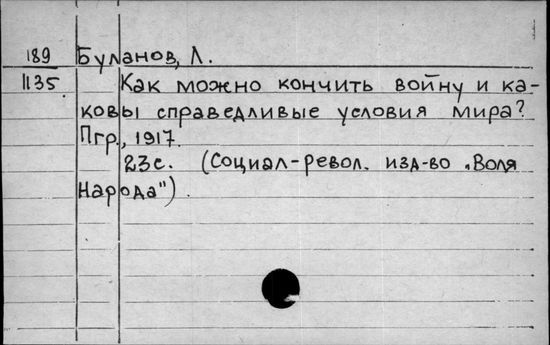 189 Буланов, Л.
1135 Как можно кончить войну и ка-
ковы справедливые условия мира?
Пгр., 1917.
23с. (Социал-револ. изд-во „Воля
Народа")